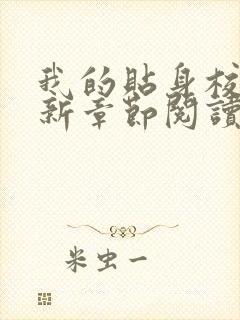 我的貼身校
新章節閱讀
米虫一